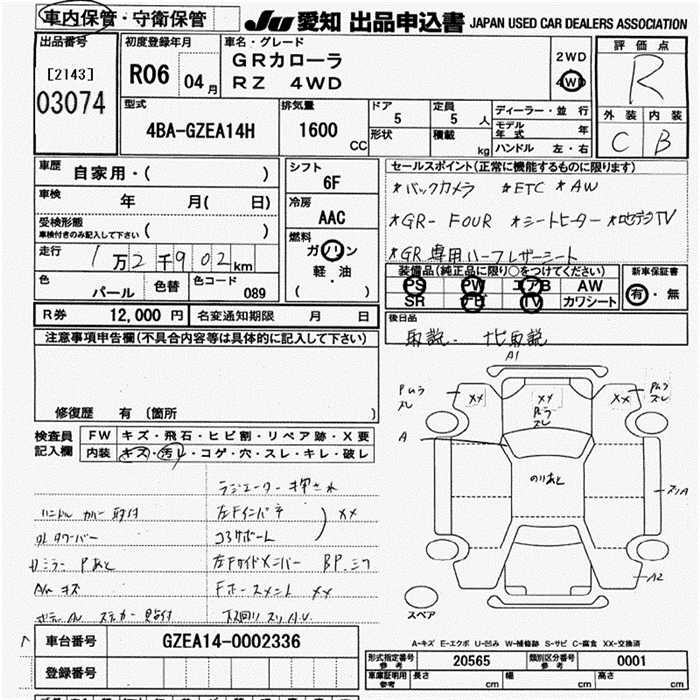 車内保管・守衛保管
JU 愛知 出品申込書 JAPAN USED CAR DEALERS ASSOCIATION
出品番号
[2143]
03074
初度登録年月
R06 04月
車名・グレード
GRカローラ
RZ 4WD
2WD
4WD
評価点
R
外装 内装
C B
型式
4BA-GZEA14H
排気量
1600 CC
ドア 5
形状
定員 5 人
積載 kg
ディーラー・並行
モデル年式 年
ハンドル 左・右
車歴
自家用・( )
車検 年 月( 日)
受検形態
車検付きのみ記入して下さい ( )
走行 1万2千902km
色 パール 色替 色コード 089
シフト
6F
冷房
AAC
燃料
ガソリン
軽・油
( )
セールスポイント(正常に機能するものに限ります)
*バックカメラ *ETC *AW
*GR-FOUR *シートヒーター *地デジTV
*GR専用ハーフレザーシート
装備品(純正品に限り○をつけてください)
PS PW エアB AW
SR ナビ TV カワシート
新車保証書
有・無
R券 12,000円 名変通知期限 月 日
後日品
取説・ナビ取説
注意事項申告欄(不具合内容等は具体的に記入して下さい)
修復歴 有 (箇所 )
検査員記入欄
FW キズ・飛石・ヒビ割・リペア跡・X要
内装 キズ・汚レ・コゲ・穴・スレ・キレ・破レ
ラジエーター押され
ハンドルカバー取付
左Fインパネ
XX
コアサポート
ミラー Pあと
左Fサイドメンバー
Fホースメント XX
A1
A
XX
XX
XX
のりあと
A2
スペア
A-キズ E-エクボ U-凹み W-補修跡 S-サビ C-腐食 XX-交換済
車台番号 GZEA14-0002336
登録番号
形式指定番号 参考 20565 類別区分番号 参考 0001
車庫証明用 参考 長さ cm 幅 cm 高さ cm